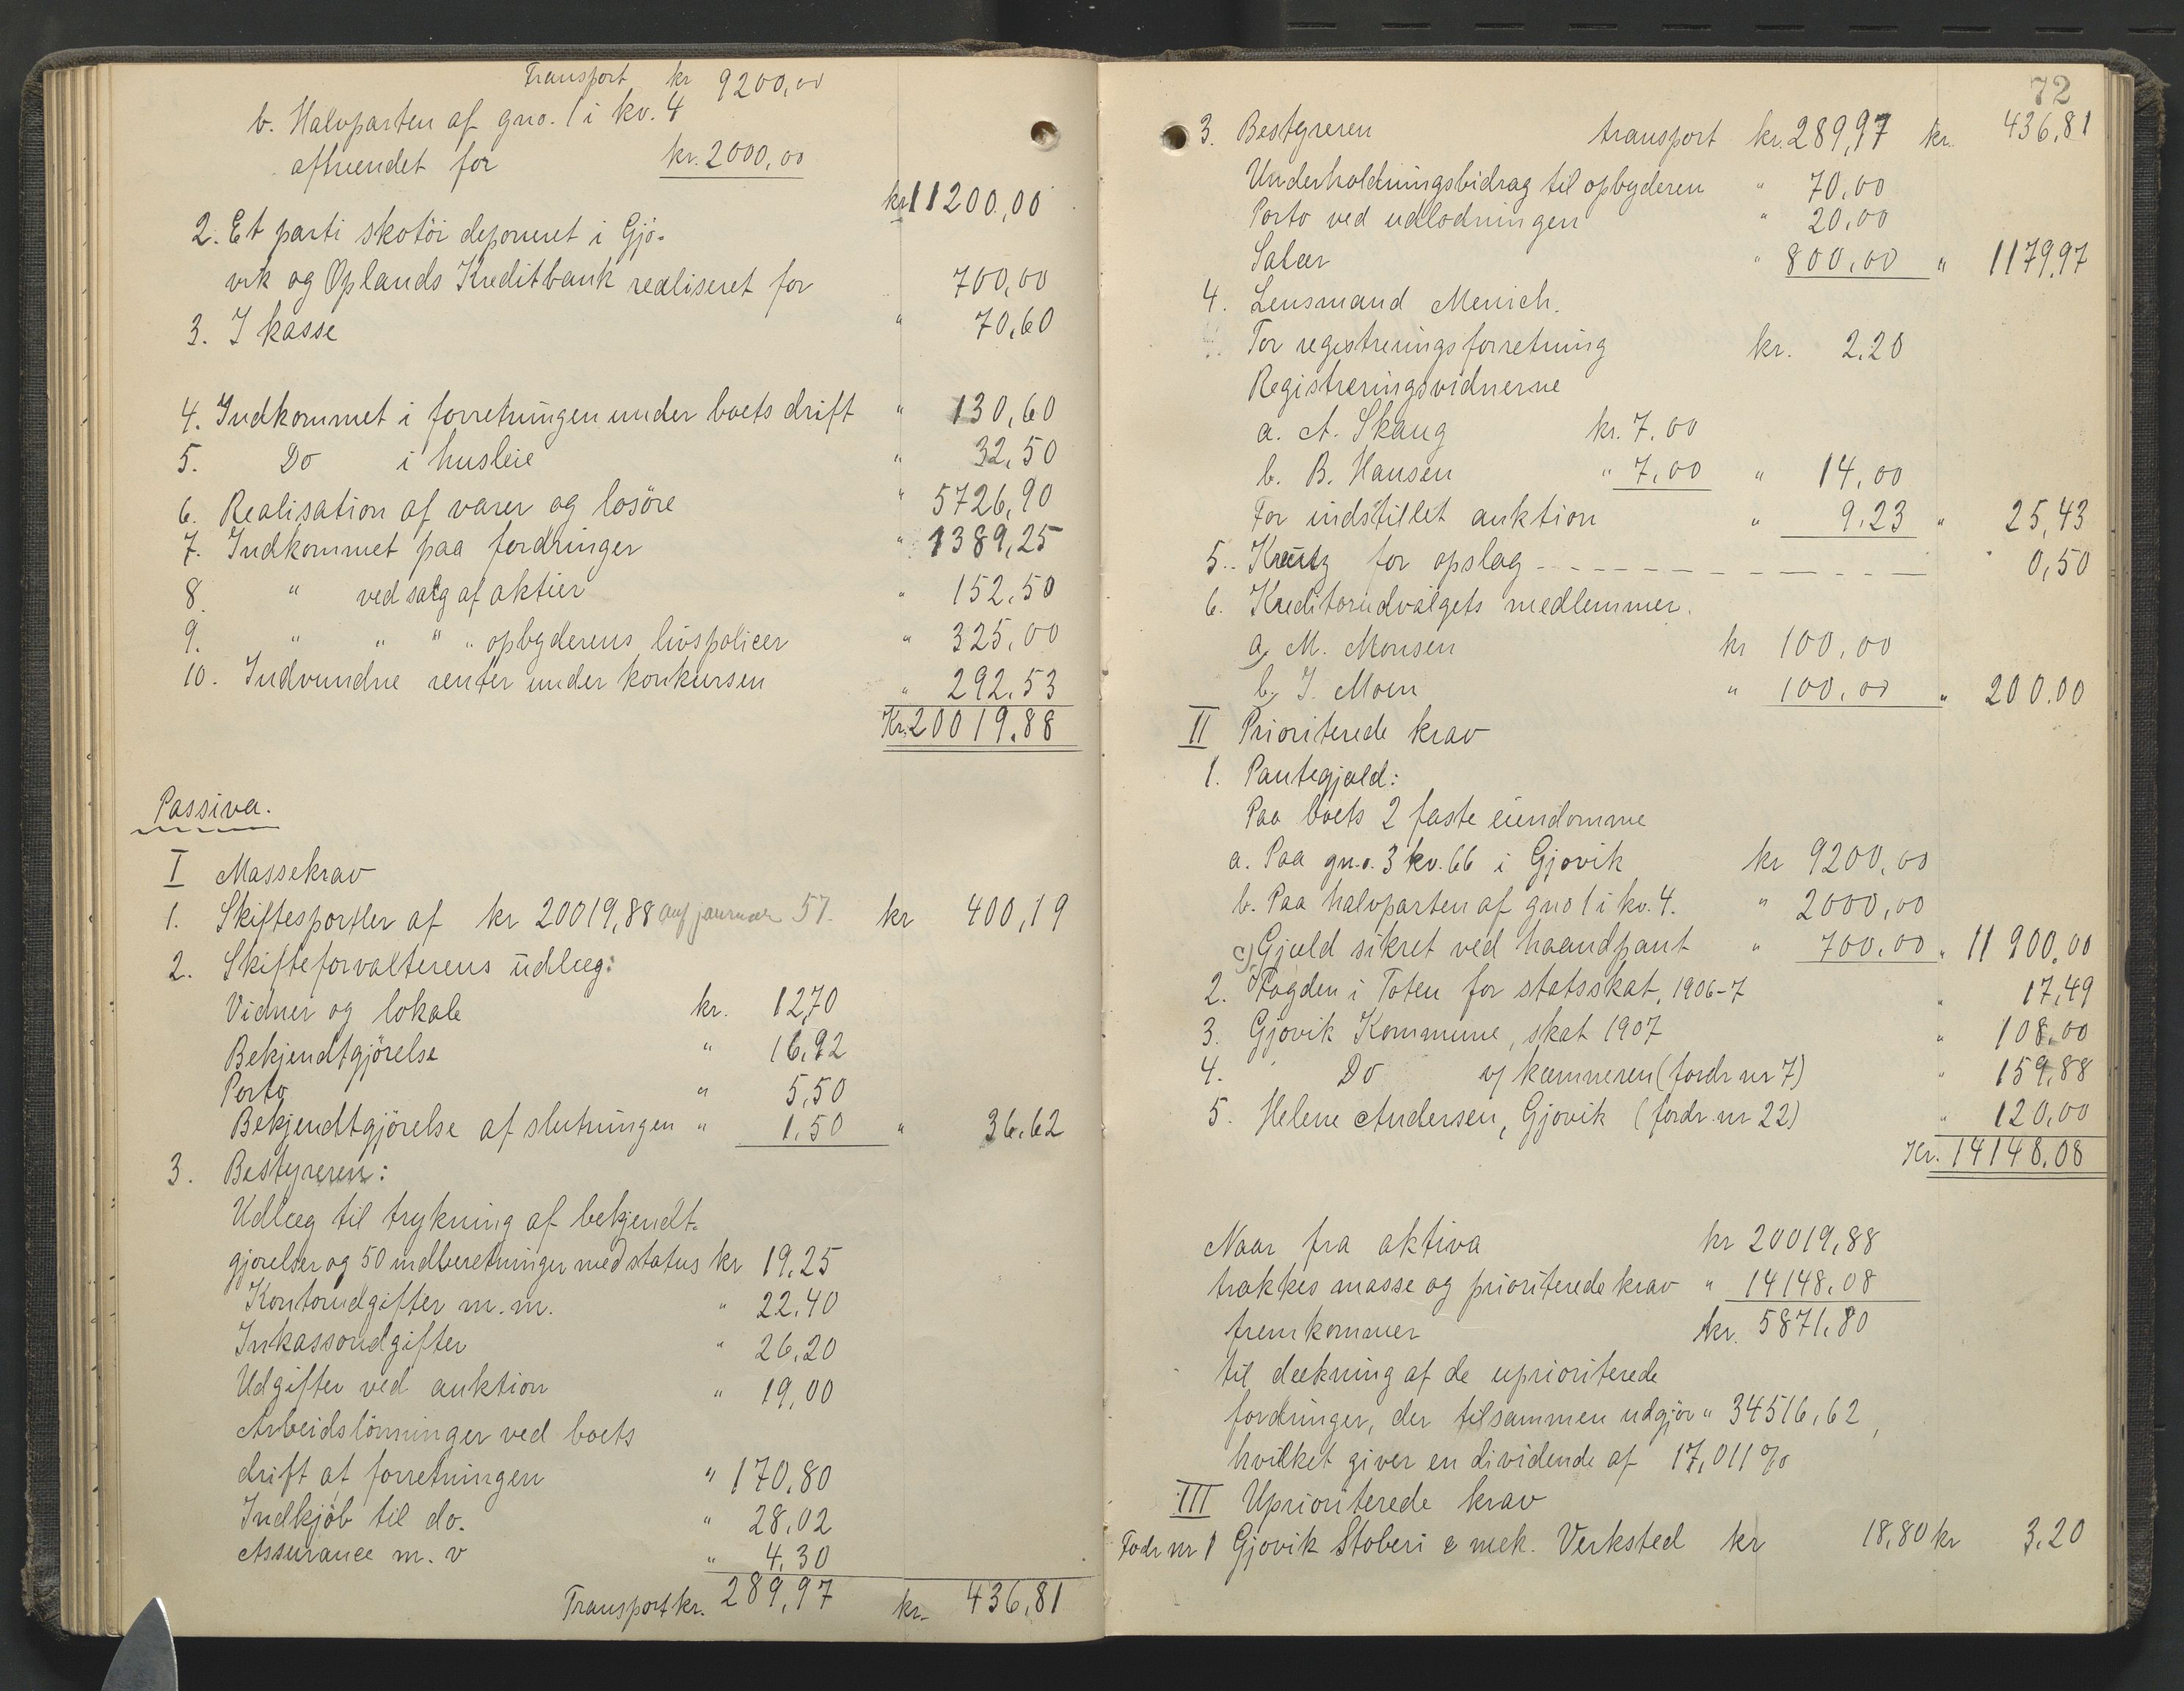 Transport kr 9200,00
b. Halvparten af gno. 1 i kv. 4
afhændet for kr. 2000,00
kr 11200,00
2. Et parti skotöi deponeret i Gjö-
vik og Oplands Kreditbank realiseret for 700,00
3. I kasse " 70,60
4. Indkommet i forretningen under boets drift " 130,60
5. Do i husleie " 32,50
6. Realisation af varer og losöre " 5726,90
7. Indkommet paa fordringer " 1389,25
8. " ved salg af aktier " 152,50
9. " " " " opbyderens livspolicer " 325,00
10. Indvundne renter under konkursen " 292,53
Kr. 20019.88
Passiva.
I Massekrav
1. Skiftesportler af kr 20019,88 januar 57. kr 400,19
2. Skifteforvalterens udlæg:
Vidner og lokale kr. 12,70
Bekjendtgjörelse " 16,92
Porto " 5,50
Bekjendtgjörelse af slutningen " 1,50 " 36,62
3. Bestyreren:
Udlæg til trykning af bekjendt-
gjörelser og 50 indberetninger med status kr 19,25
Kontorudgifter m.m. " 22,40
Inkassoudgifter " 26,20
Udgifter ved auktion " 19,00
Arbeidslönninger ved boets
drift af forretningen " 170,80
Indkjöb til do. " 28,02
Assurance m.v " 4,30
Transport kr. 289,97 kr. 436,81
72
3. Bestyreren transport kr. 289,97 kr. 436,81
Underholdningsbidrag til opbyderen " 70,00
Porto ved udlodningen " 20,00
Salær " 800,00 " 1179,97
4. Lensmand Menich.
For registreringsforretning kr. 2,20
Registreringsvidnerne
a. A. Skaug kr. 7,00
b. B. Hansen " 7,00 " 14,00
For indstillet auktion " 9,23 " 25,43
5. Krütz for opslag " 0,50
6. Kreditorudvalgets medlemmer.
a, M. Monsen kr 100,00
b, J. Moen " 100,00 " 200.00
II Prioriterede krav
1. Pantegjæld:
Paa boets 2 faste eiendomme
a. Paa gno. 3 kv. 66 i Gjøvik kr 9200,00
b. Paa halvparten af gno 1 i kv. 4. " 2000,00
c) Gjæld sikret ved haandpant " 700,00 " 11900,00
2. Fogden i Toten for statsskat, 1906-7 " 17,49
3. Gjøvik Kommune, skat 1907 " 108,00
4. Do v/ kæmneren (fordr nr 7) " 159,88
5. Helene Andersen, Gjøvik (fordr. nr 22) " 120,00
Kr. 14148.08
Naar fra aktiva kr 20019,88
trækkes masse og prioriterede krav " 14148,08
fremkommer kr. 5871,80
til dækning af de uprioriterede
fordringer, der tilsammen udgjør " 34516,62,
hvilket giver en dividende af 17,011 %
III Uprioriterede krav
Fodr nr 1 Gjøvik Støberi & mek. Verksted kr 18,80 kr 3,20